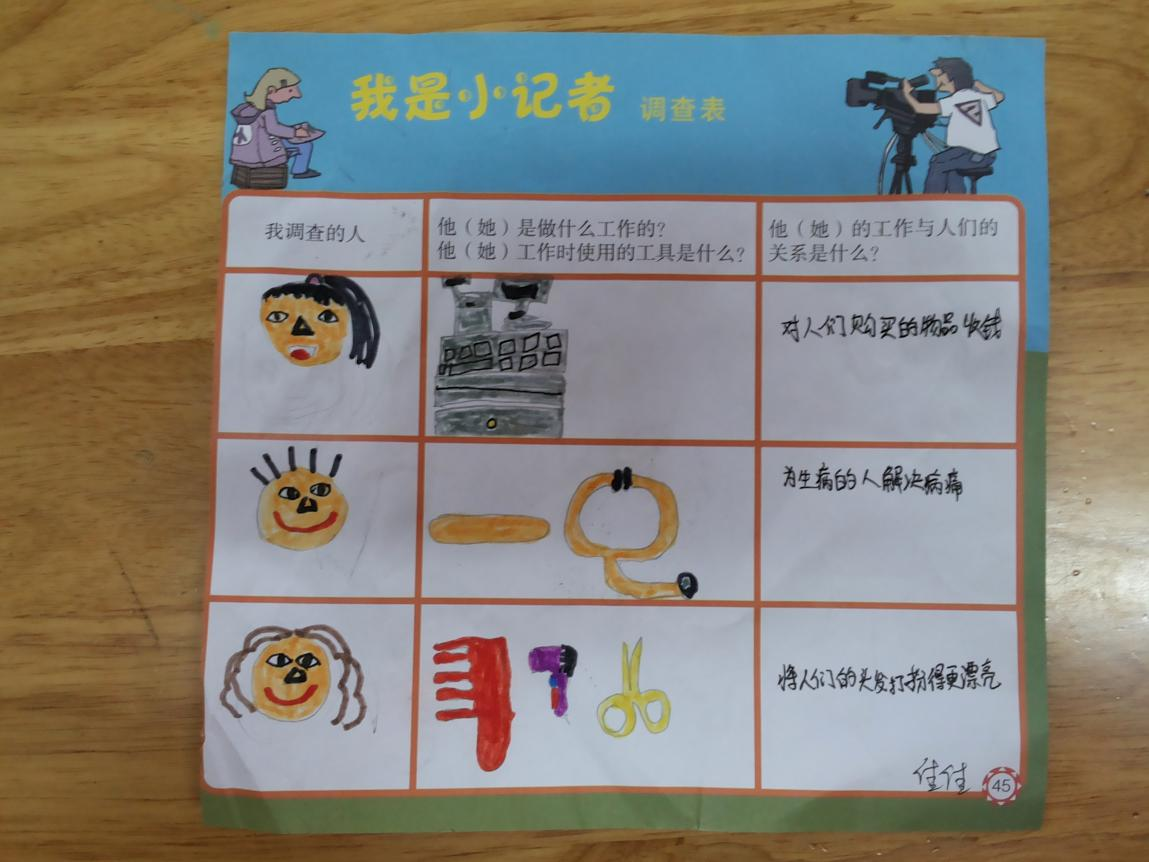 我是小记者 调查表
我调查的人
他（她）是做什么工作的？
他（她）工作时使用的工具是什么？
他（她）的工作与人们的
关系是什么？
对人们购买的物品收钱
为生病的人解决病痛
将人们的头发打扮得更漂亮
佳佳
45